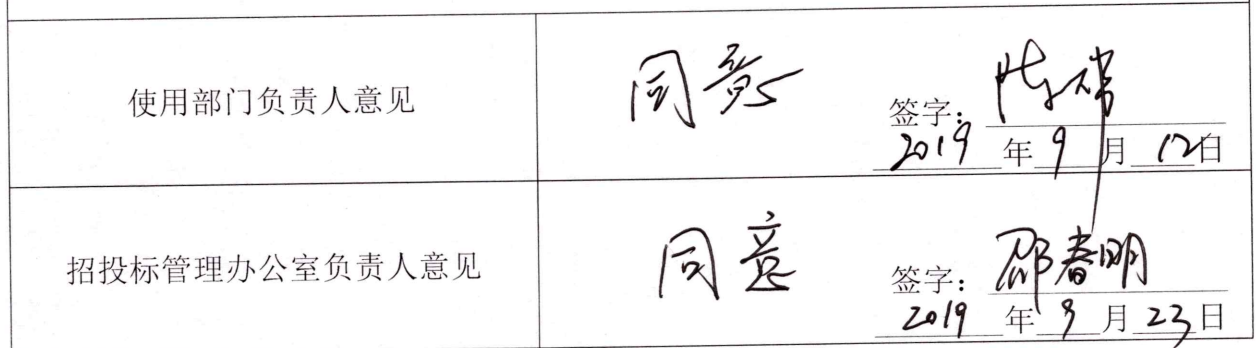 使用部门负责人意见
同意
签字:
2019年9月12日
招投标管理办公室负责人意见
同意
签字:邵春明
2019年9月23日